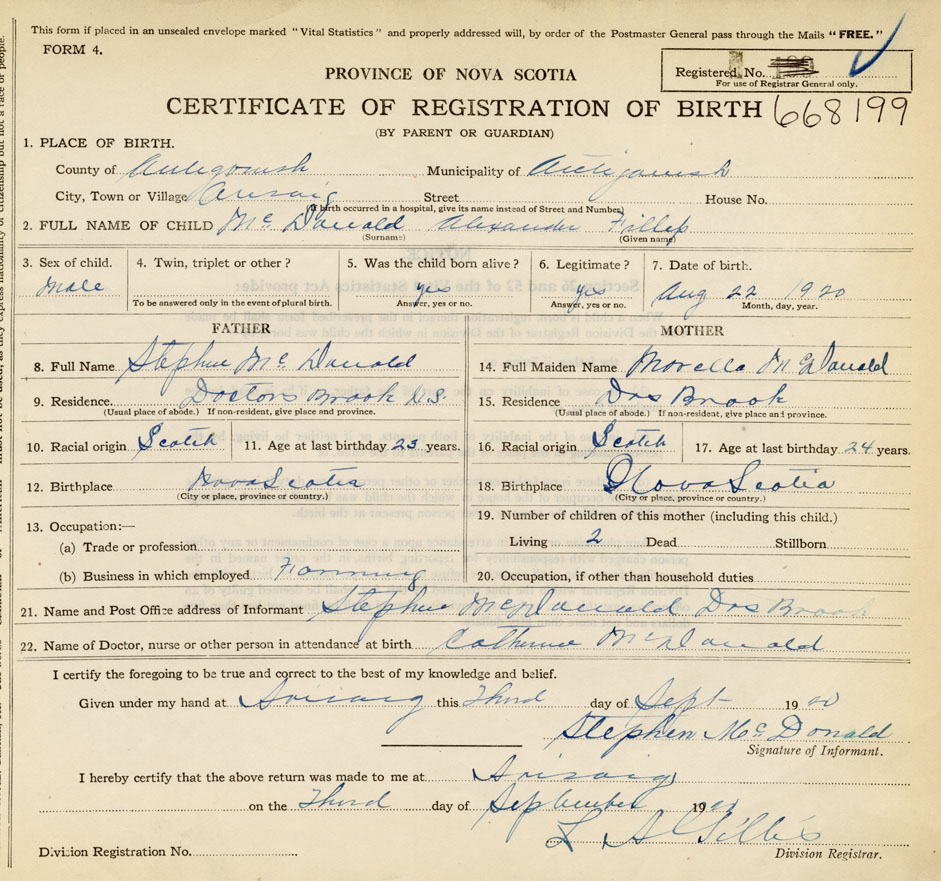 This form if placed in an unsealed envelope marked "Vital Statistics" and properly addressed will, by order of the Postmaster General pass through the Mails "FREE."
FORM 4.
Registered No.
For use of Registrar General only.
PROVINCE OF NOVA SCOTIA
CERTIFICATE OF REGISTRATION OF BIRTH 668199
(BY PARENT OR GUARDIAN)
1. PLACE OF BIRTH.
County of Antigonish Municipality of Antigonish
City, Town or Village Arisaig Street House No.
(If birth occurred in a hospital, give its name instead of Street and Number)
2. FULL NAME OF CHILD McDonald Alexander Fillip
(Surname) (Given name)
3. Sex of child. 4. Twin, triplet or other? 5. Was the child born alive? 6. Legitimate? 7. Date of birth.
Male yes yes Aug 22 1920
To be answered only in the event of plural birth. Answer, yes or no. Answer, yes or no. Month, day, year.
FATHER MOTHER
8. Full Name Stephen McDonald 14. Full Maiden Name McDonald
9. Residence Doctors Brook N.S. 15. Residence Drs Brook
(Usual place of abode.) If non-resident, give place and province. (Usual place of abode.) If non-resident, give place and province.
10. Racial origin Scotch 11. Age at last birthday years. 16. Racial origin Scotch 17. Age at last birthday 24 years.
12. Birthplace Nova Scotia 18. Birthplace Nova Scotia
(City or place, province or country.) (City or place, province or country.)
13. Occupation:— 19. Number of children of this mother (including this child.)
(a) Trade or profession Living 2 Dead Stillborn
(b) Business in which employed Farming 20. Occupation, if other than household duties
21. Name and Post Office address of Informant Stephen McDonald Drs Brook
22. Name of Doctor, nurse or other person in attendance at birth Catherine McDonald
I certify the foregoing to be true and correct to the best of my knowledge and belief.
Given under my hand at Arisaig this Third day of Sept 1920
Stephen McDonald
Signature of Informant.
I hereby certify that the above return was made to me at Arisaig
on the Third day of September 19
Gillis
Division Registration No. Division Registrar.